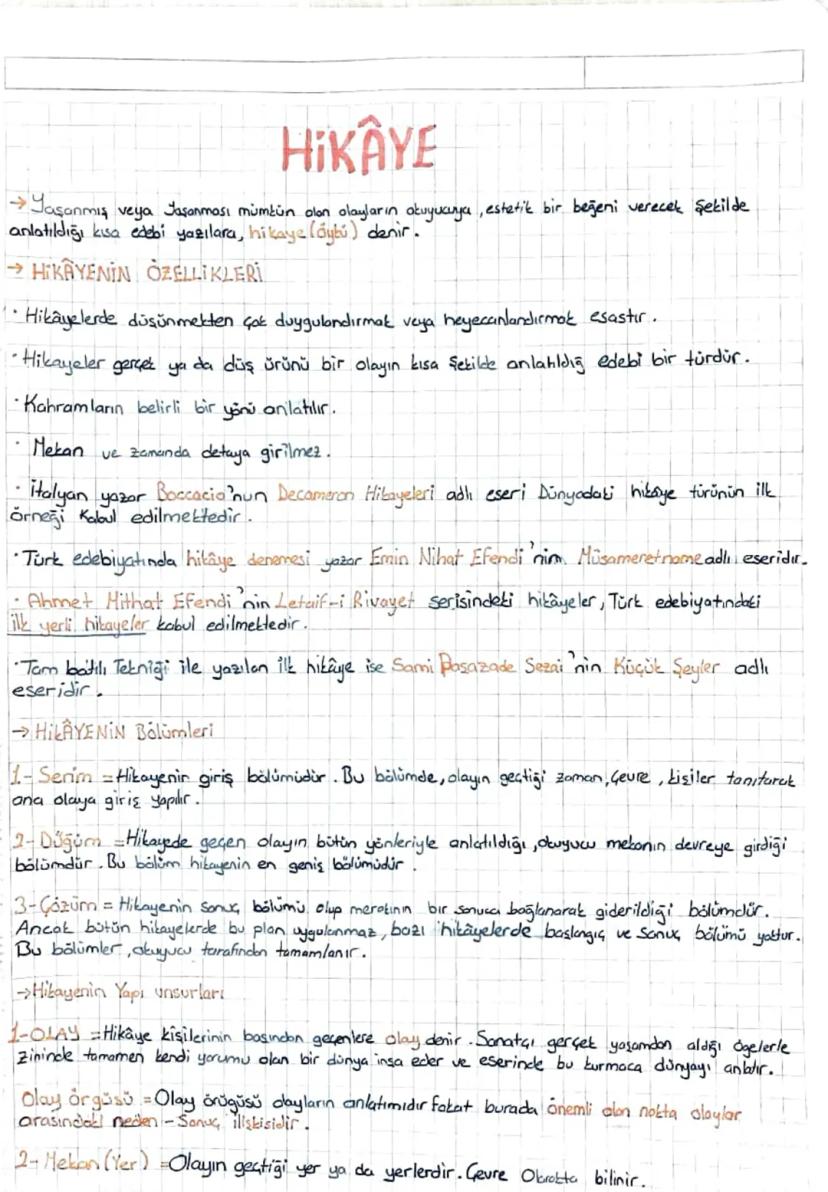 HİKÂYE
→ Yaşanmış veya Yaşanması mümkün olan olayların okuyucuya, estetik bir beğeni verecek şekilde
anlatıldığı kısa edebi yazılara, hikaye (öykü) denir.
→ HİKÂYENİN ÖZELLİKLERİ
· Hikâyelerde düşünmekten çok duygulandırmak veya heyecanlandırmak esastır.
· Hikayeler gerçek ya da düş ürünü bir olayın kısa şekilde anlatıldığ edebi bir türdür.
· Kahramların belirli bir yönü anlatılır.
· Mekan ve zamanda detaya girilmez.
· İtalyan yazar Boccacio'nun Decameron Hikayeleri adlı eseri Dünyadaki hikâye türünün ilk
örneği Kabul edilmektedir.
· Türk edebiyatında hikâye denemesi yazar Emin Nihat Efendi'nim Müsameretname adlı eseridir.
· Ahmet Mithat Efendi'nin Letaif-i Rivayet serisindeki hikâyeler, Türk edebiyatındaki
ilk yerli hikayeler kabul edilmektedir.
· Tam batılı Tekniği ile yazılan ilk hikâye ise Sami Paşazade Sezai'nin Küçük Şeyler adlı
eseridir.
→ HİKÂYENİN Bölümleri
1- Serim = Hikayenin giriş bölümüdür. Bu bölümde, olayın geçtiği zaman, Çevre, kişiler tanıtarak
ana olaya giriş yapılır.
2- Düğüm = Hikayede geçen olayın bütün yönleriyle anlatıldığı, okuyucu mekanın devreye girdiği
bölümdür. Bu bölüm hikayenin en geniş bölümüdür.
3- Çözüm = Hikayenin sonuç bölümü olup merakının bir sonuca bağlanarak giderildiği bölümdür.
Ancak bütün hikayelerde bu plan uygulanmaz, bazı hikâyelerde başlangıç ve sonuç bölümü yoktur.
Bu bölümler, okuyucu tarafından tamamlanır.
→ Hikayenin Yapı unsurları
1- OLAY = Hikâye kişilerinin başından geçenlere olay denir. Sanatçı gerçek yaşamdan aldığı ögelerle
zininde tamamen kendi yorumu olan bir dünya inşa eder ve eserinde bu kurmaca dünyayı anlatır.
Olay örgüsü = Olay örügüsü olayların anlatımıdır fakat burada önemli olan nokta olaylar
arasındaki neden - Sonuç ilişkisidir.
2- Mekan (Yer) = Olayın geçtiği yer ya da yerlerdir. Çevre Olarakta bilinir.